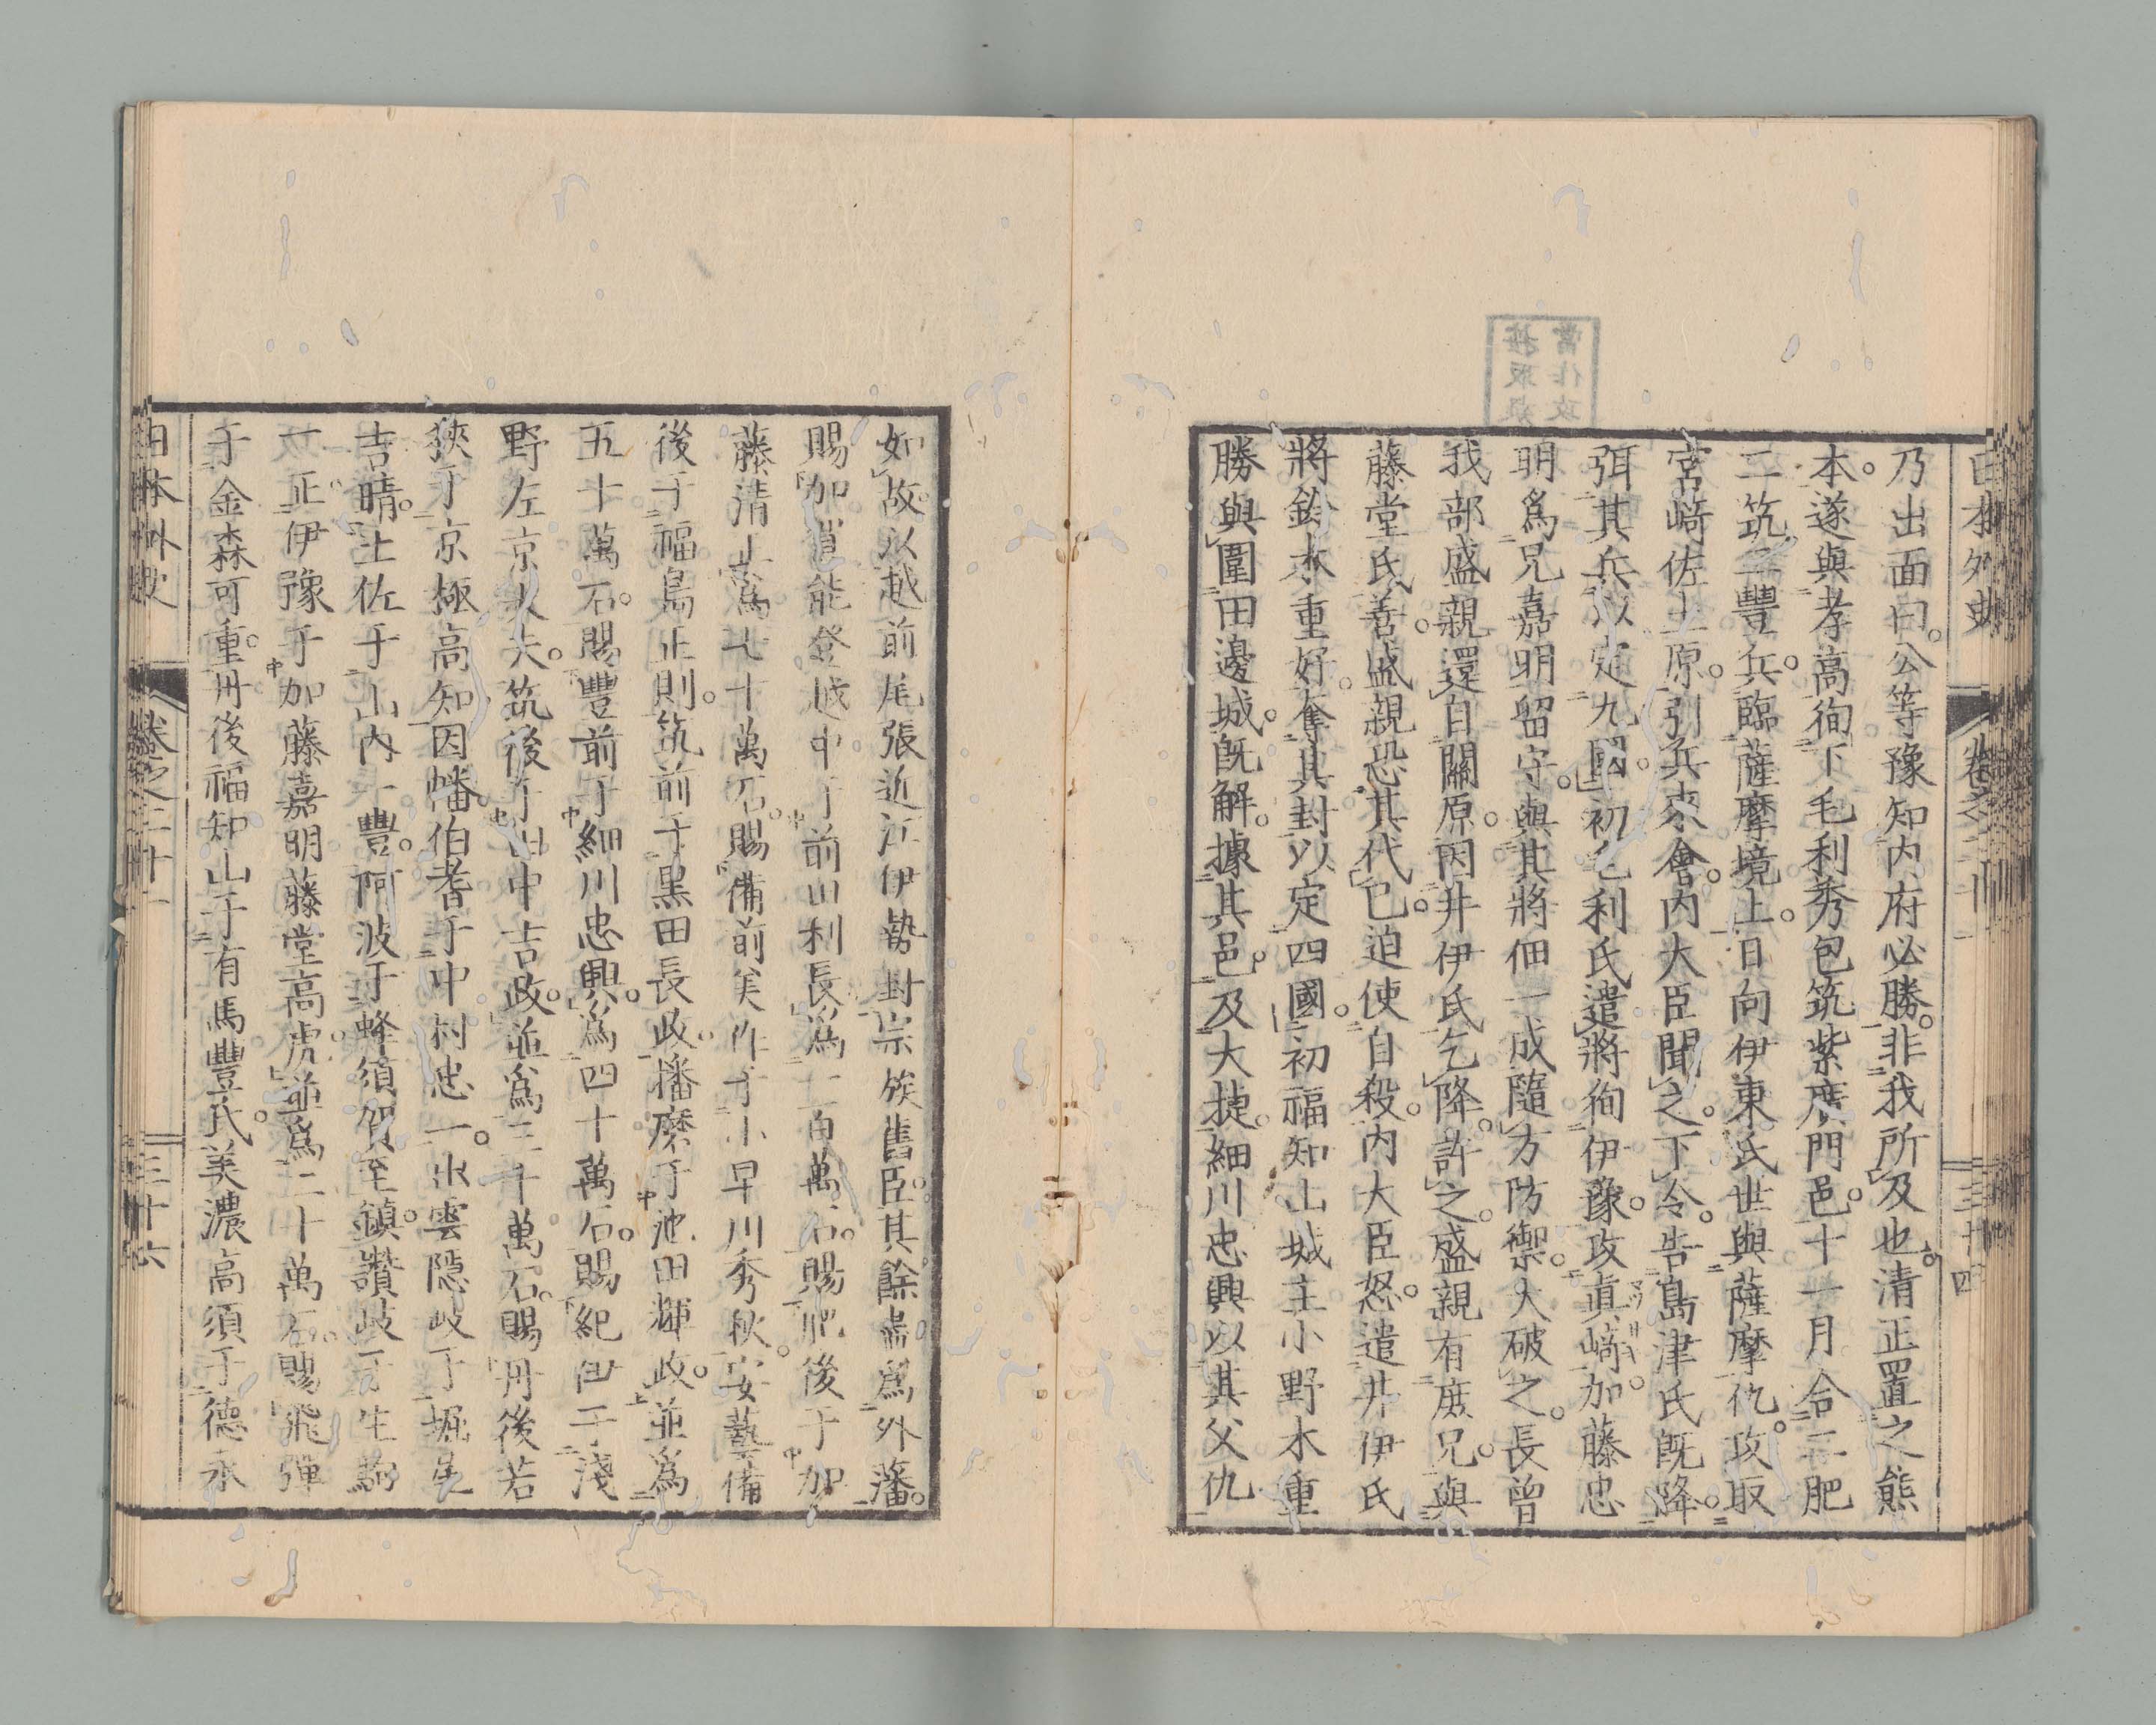 日本外史 卷之二十一 三十四
乃出面曰。公等豫知內府必勝。非我所及也。清正置之熊
本。遂與孝高徇下毛利秀包筑紫廣門邑。十一月合二肥
二筑二豐兵。臨薩摩境上。日向伊東氏世與薩摩仇。攻取
宮崎佐土原。引兵來會。內大臣聞之。下令告島津氏既降。
弭其兵。以定九國。初毛利氏遣將徇伊豫。攻眞崎。加藤忠
明爲兄嘉明留守。與其將佃一成隨方防禦。大破之。長曾
我部盛親還自關原。因井伊氏乞降。許之。盛親有庶兄。與
藤堂氏善。盛親恐其代己。迫使自殺。內大臣怒。遣井伊氏
將鈴木重好奪其封。以定四國。初福知山城主小野木重
勝與圍田邊城。既解。據其邑。及大捷。細川忠興以其父仇
如故。以越前尾張近江伊勢封宗族舊臣。其餘盡爲外藩。
賜加道能登越中于前田利長。爲一百萬石。賜肥後于加
藤清正。爲七十萬石。賜備前美作于小早川秀秋。安藝備
後于福島正則。筑前于黑田長政。播磨于池田輝政。並爲
五十萬石。賜豐前于細川忠興。爲四十萬石。賜紀伊于淺
野左京大夫。筑後于田中吉政。並爲三十萬石。賜丹後若
狹于京極高知。因幡伯耆于中村忠一。出雲隱岐于堀尾
吉晴。土佐于山內一豐。阿波于蜂須賀至鎭。讚岐于生駒
一正。伊豫于加藤嘉明藤堂高虎。並爲二十萬石。賜飛彈
于金森可重。丹後福知山于有馬豐氏。美濃高須于德永
日本外史 卷之二十一 三十六